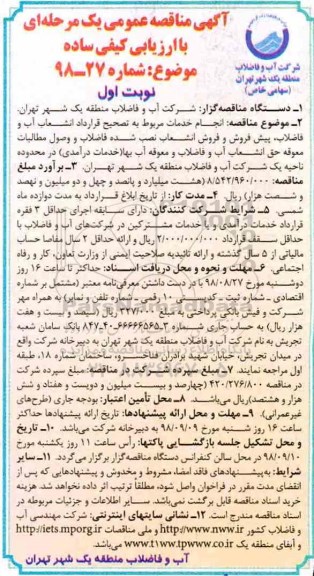 آگهی مناقصه عمومی یک مرحله‌ای
با ارزیابی کیفی ساده
موضوع: شماره ۲۷-۹۸
نوبت اول
شرکت آب و فاضلاب
منطقه یک شهر تهران
(سهامی خاص)
۱- دستگاه مناقصه‌گزار: شرکت آب و فاضلاب منطقه یک شهر تهران.
۲- موضوع مناقصه: انجام خدمات مربوط به تصحیح قرارداد انشعاب آب و
فاضلاب، پیش فروش و فروش انشعاب نصب شده فاضلاب و وصول مطالبات
معوقه حق انشعاب آب و فاضلاب و معوقه آب بها(خدمات درآمدی) در محدوده
ناحیه یک شرکت آب و فاضلاب منطقه یک شهر تهران. ۳- برآورد مبلغ
مناقصه: ۸/۵۴۲/۹۶۰/۰۰۰ (هشت میلیارد و پانصد و چهل و دو میلیون و نهصد
و شصت هزار) ریال. ۴- مدت کار: از تاریخ ابلاغ قرارداد به مدت دوازده ماه
شمسی. ۵- شرایط شرکت کنندگان: دارای سابقه اجرای حداقل ۳ فقره
قرارداد خدمات درآمدی یا خدمات مشترکین در شرکت‌های آب و فاضلاب با
حداقل سقف قرارداد ۲/۰۰۰/۰۰۰/۰۰۰ ریال و ارائه حداقل ۲ سال مفاصا حساب
مالیاتی از ۵ سال گذشته و ارائه تائیدیه صلاحیت ایمنی از وزارت تعاون، کار و رفاه
اجتماعی. ۶- مهلت و نحوه و محل دریافت اسناد: حداکثر تا ساعت ۱۶ روز
دوشنبه مورخ ۹۸/۰۸/۲۷ با در دست داشتن معرفی‌نامه معتبر (مشتمل بر شماره
اقتصادی - شماره ثبت - کدپستی ۱۰ رقمی - شماره تلفن و نمابر) به همراه مهر
شرکت و فیش بانکی پرداختی به مبلغ
هزار ریال) به حساب جاری شماره
بانک سامان شعبه
تجریش به نام شرکت آب و فاضلاب منطقه یک شهر تهران به دبیرخانه شرکت واقع
در میدان تجریش، خیابان شهید برادران فناخسرو، ساختمان شماره ۱۸، طبقه
اول مراجعه نمایند. ۷- مبلغ سپرده شرکت در مناقصه: مبلغ سپرده شرکت
در مناقصه ۴۲۰/۲۷۶/۸۰۰ (چهارصد و بیست میلیون و دویست و هفتاد و شش
هزار و هشتصد)ریال می‌باشد. ۸- محل تأمین اعتبار: بودجه جاری (طرح‌های
غیرعمرانی). ۹- مهلت و محل ارائه پیشنهادها: تاریخ ارائه پیشنهادها حداکثر
تا ساعت ۱۶ روز شنبه مورخ ۹۸/۰۹/۰۹ به دبیرخانه شرکت می‌باشد. ۱۰- تاریخ
و محل تشکیل جلسه بازگشایی پاکتها: رأس ساعت ۱۱ روز یکشنبه مورخ
۹۸/۰۹/۱۰ در محل سالن کنفرانس دستگاه مناقصه‌گزار برگزار می‌گردد. ۱۱- سایر
شرایط: به پیشنهادهای فاقد امضا، مشروط و مخدوش و پیشنهادهایی که پس از
انقضای مدت مقرر در فراخوان واصل شود، مطلقاً ترتیب اثر داده نخواهد شد. هزینه
خرید اسناد مناقصه قابل برگشت نمی‌باشد. سایر اطلاعات و جزئیات مربوطه در
اسناد مناقصه مندرج است. ۱۲- نشانی سایتهای اینترنتی: شرکت مهندسی آب
و فاضلاب کشور http://www.nww.ir و ملی مناقصات http://iets.mporg.ir
و آبفای منطقه یک www.t1ww.tpww.co.ir می‌باشد.
آب و فاضلاب منطقه یک شهر تهران